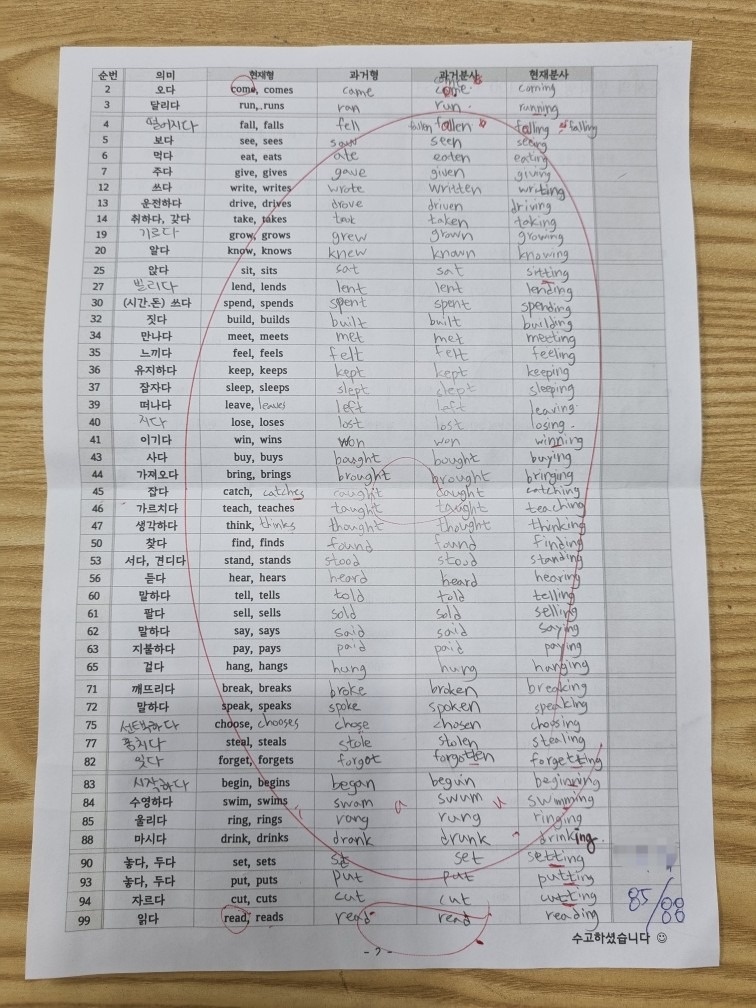 순번 의미 현재형 과거형 과거분사 현재분사
2 오다 come, comes came come coming
3 달리다 run, runs ran run running
4 떨어지다 fall, falls fell fallen fallen falling falling
5 보다 see, sees saw seen seeing
6 먹다 eat, eats ate eaten eating
7 주다 give, gives gave given giving
12 쓰다 write, writes wrote written writing
13 운전하다 drive, drives drove driven driving
14 취하다, 갖다 take, takes took taken taking
19 기르다 grow, grows grew grown growing
20 알다 know, knows knew known knowing
25 앉다 sit, sits sat sat sitting
27 빌리다 lend, lends lent lent lending
30 (시간.돈) 쓰다 spend, spends spent spent spending
32 짓다 build, builds built built building
34 만나다 meet, meets met met meeting
35 느끼다 feel, feels felt felt feeling
36 유지하다 keep, keeps kept kept keeping
37 잠자다 sleep, sleeps slept slept sleeping
39 떠나다 leave, leaves left left leaving
40 지다 lose, loses lost lost losing
41 이기다 win, wins won won winning
43 사다 buy, buys bought bought buying
44 가져오다 bring, brings brought brought bringing
45 잡다 catch, catches caught caught catching
46 가르치다 teach, teaches taught taught teaching
47 생각하다 think, thinks thought thought thinking
50 찾다 find, finds found found finding
53 서다, 견디다 stand, stands stood stood standing
56 듣다 hear, hears heard heard hearing
60 말하다 tell, tells told told telling
61 팔다 sell, sells sold sold selling
62 말하다 say, says said said saying
63 지불하다 pay, pays paid paid paying
65 걸다 hang, hangs hung hung hanging
71 깨뜨리다 break, breaks broke broken breaking
72 말하다 speak, speaks spoke spoken speaking
75 선택하다 choose, chooses chose chosen choosing
77 훔치다 steal, steals stole stolen stealing
82 잊다 forget, forgets forgot forgotten forgetting
83 시작하다 begin, begins began begun beginning
84 수영하다 swim, swims swam swum swimming
85 울리다 ring, rings rang rung ringing
88 마시다 drink, drinks drank drunk drinking
90 놓다, 두다 set, sets set set setting
93 놓다, 두다 put, puts put put putting
94 자르다 cut, cuts cut cut cutting
99 읽다 read, reads read read reading
85/88
수고하셨습니다 ☺
- 2 -